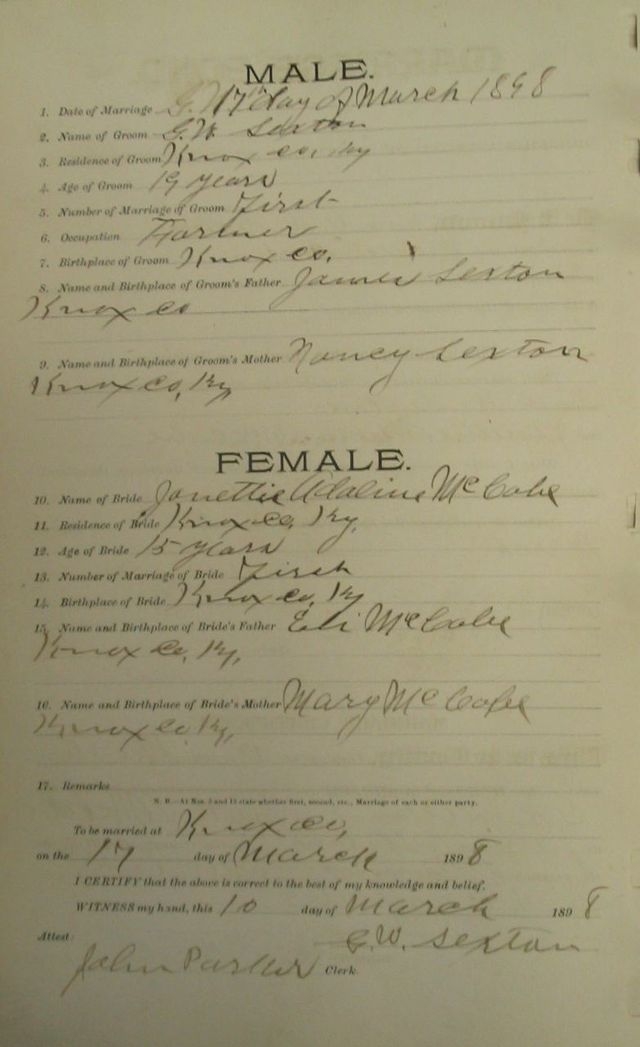 MALE.
1. Date of Marriage 17 day of March 1898
2. Name of Groom G. W. Sexton
3. Residence of Groom Knox Co, Ky
4. Age of Groom 19 years
5. Number of Marriage of Groom First
6. Occupation Farmer
7. Birthplace of Groom Knox Co.
8. Name and Birthplace of Groom's Father James Sexton
Knox Co
9. Name and Birthplace of Groom's Mother Nancy Sexton
Knox Co, Ky
FEMALE.
10. Name of Bride Adaline
11. Residence of Bride Knox Co, Ky.
12. Age of Bride 15 years
13. Number of Marriage of Bride First
14. Birthplace of Bride Knox Co, Ky
15. Name and Birthplace of Bride's Father Eli
Knox Co, Ky,
16. Name and Birthplace of Bride's Mother Mary
Knox Co Ky,
17. Remarks
N. B.—At Nos. 5 and 13 state whether first, second, etc., Marriage of each or either party.
To be married at Knox Co,
on the 17 day of March 1898
I CERTIFY that the above is correct to the best of my knowledge and belief.
WITNESS my hand, this 10 day of March 1898
G. W. Sexton
Attest:
John Parker Clerk.